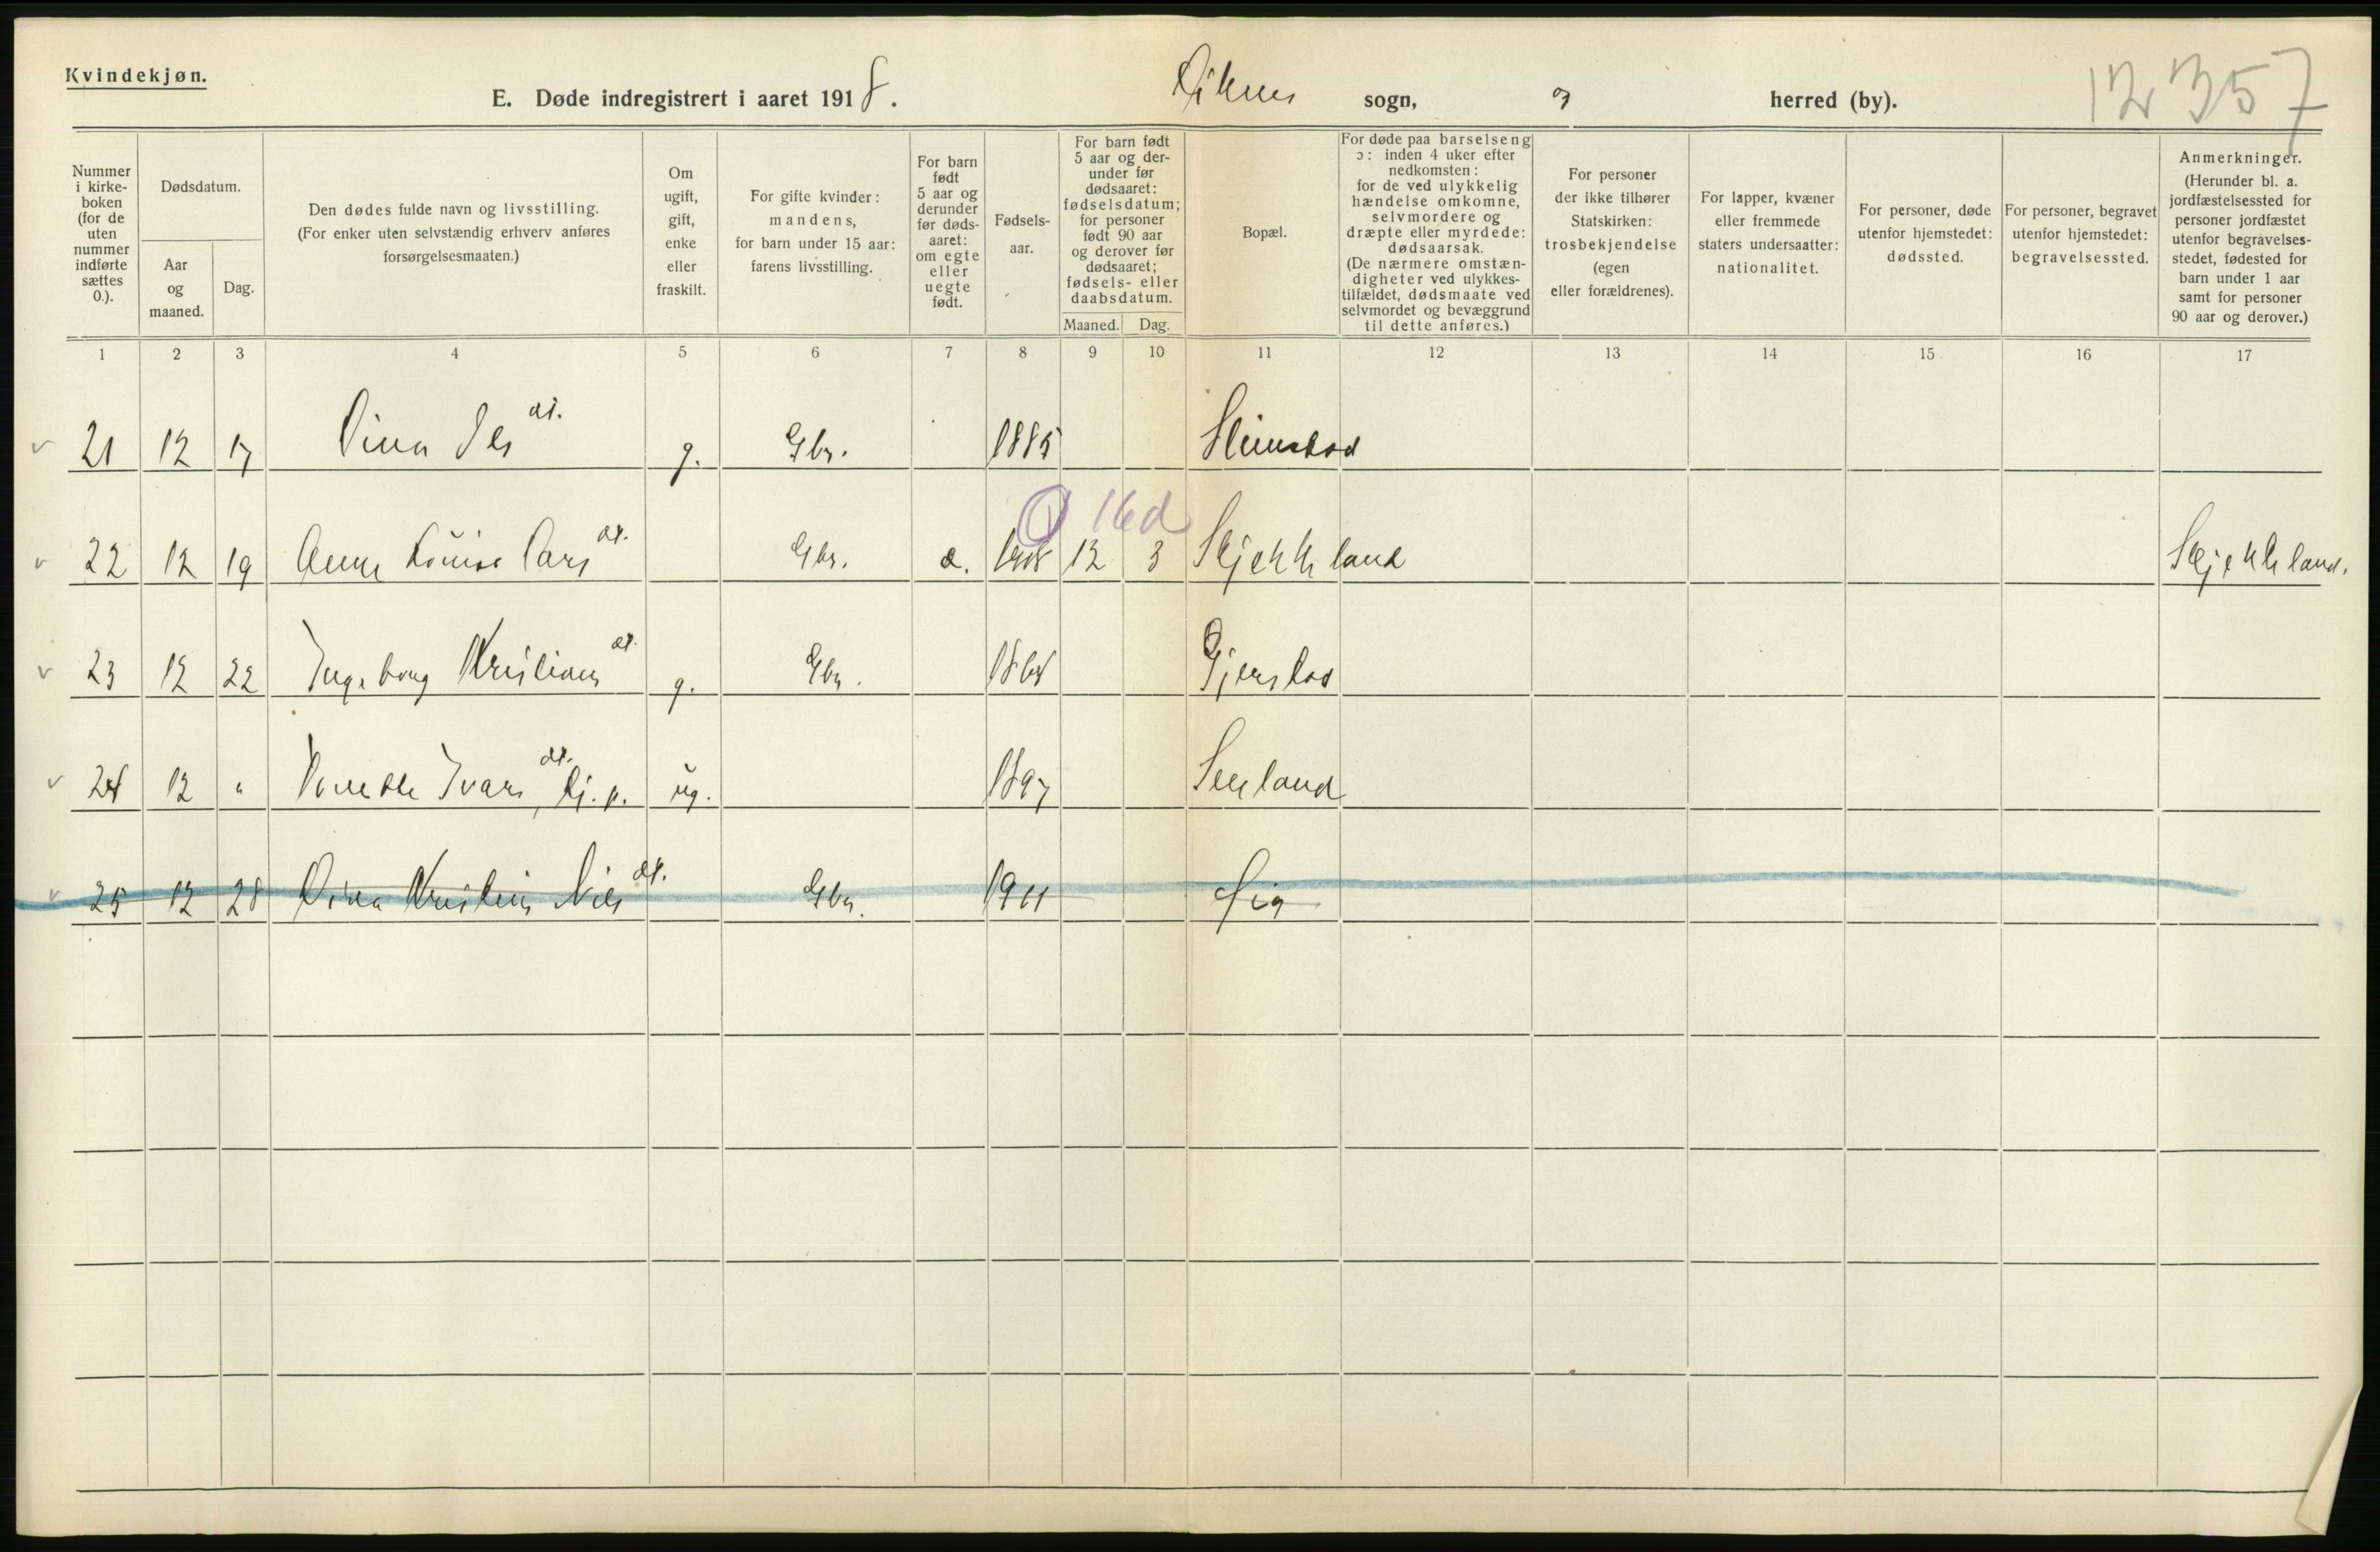 Kvindekjøn.
E. Døde indregistrert i aaret 1918. sogn, herred (by).
12 357
Nummer
i kirke-
boken
(for de
uten
nummer
indførte
sættes
0.).
Dødsdatum.
Aar
og
maaned.
Dag.
Den dødes fulde navn og livsstilling.
(For enker uten selvstændig erhverv anføres
forsørgelsesmaaten.)
Om
ugift,
gift,
enke
eller
fraskilt.
For gifte kvinder:
mandens,
for barn under 15 aar:
farens livsstilling.
For barn
født
5 aar og
derunder
før døds-
aaret:
om egte
eller
uegte
født.
Fødsels-
aar.
For barn født
5 aar og der-
under før
dødsaaret:
fødselsdatum;
for personer
født 90 aar
og derover før
dødsaaret;
fødsels- eller
daabsdatum.
Maaned. Dag.
Bopæl.
For døde paa barselseng
ɔ: inden 4 uker efter
nedkomsten:
for de ved ulykkelig
hændelse omkomne,
selvmordere og
dræpte eller myrdede:
dødsaarsak.
(De nærmere omstæn-
digheter ved ulykkes-
tilfældet, dødsmaate ved
selvmordet og bevæggrund
til dette anføres.)
For personer
der ikke tilhører
Statskirken:
trosbekjendelse
(egen
eller forældrenes).
For lapper, kvæner
eller fremmede
staters undersaatter:
nationalitet.
For personer, døde
utenfor hjemstedet:
dødssted.
For personer, begravet
utenfor hjemstedet:
begravelsessted.
Anmerkninger.
(Herunder bl. a.
jordfæstelsessted for
personer jordfæstet
utenfor begravelses-
stedet, fødested for
barn under 1 aar
samt for personer
90 aar og derover.)
1 2 3 4 5 6 7 8 9 10 11 12 13 14 15 16 17
21 12 17 g. Gbr. 1885
16d
22 12 19 Anne Louise Lars dt. Gbr. 12 3 Skjekkland Skjekkland.
23 12 22 Ingeborg Kristians dt. g. Gbr. Gjerstad
24 12 " Ivars dt. tj. p. ug. 1897
25 12 28 Dina Kristine Nils dt. Gbr. 1911